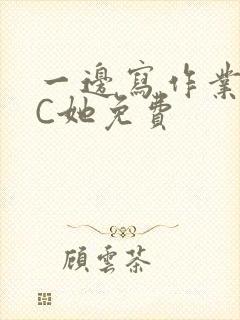 一邊寫作業
C她免費
顧雲茶